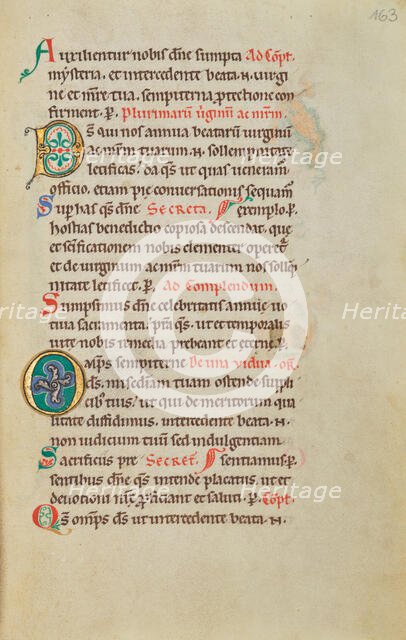 163
Auxilientur nobis dñe sumpta Ad Cōpł.
mysteria. et intercedente beata .N. virgi
ne et m̄re tua. sempiterna ꝓtectione con
firment. P. Plurimarū v̄ginū ac mr̄m.
Ds̄ qui nos annua beatarū virginū
ac mr̄m tuarum .N. sollempnitate
letificas. da q̄s ut quas ueneram̄
officio. etiam pie conuersationis sequam̄
Sup has q̄s dn̄e Secreta. exemplo. P.
hostias benedictio copiosa descendat. que
et sc̄ificationem nobis clementer operet̄
et de uirginum ac mr̄m tuarum nos sollep̄
nitate letificet. P. Ad Complendum.
Sumpsimus dn̄e celebritatis annue uo
tiua sacramenta. p̄sta q̄s. ut et temporalis
uite nobis remedia prebeant et eterne. P.
Omps sempiterne De una uidua. or̄.
ds̄. misc̄diam tuam ostende suppli
cib; tuis. ut qui de meritorum qua
litate diffidimus. intercedente beata .N.
non iudicium tuū sed indulgentiam
Sacrificiis pre Secret̄. sentiamus. P.
sentibus dn̄e q̄s intende placatus. ut et
deuotioni nr̄ę proficiant et saluti. P. Cōpł.
Qs̄ omps̄ ds̄ ut intercedente beata .N.
Heritage
Images